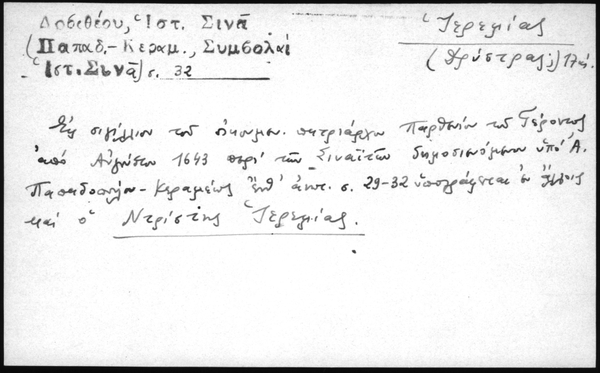 Δοσιθέου, Ἱστ. Σινᾶ
(Παπαδ.-Κεραμ., Συμβολαί
Ἱστ. Σινᾶ) σ. 32
Ἱερεμίας
(Δρύστρας;) 17 αἰ.
Εἰς σιγίλλιον τοῦ οἰκουμεν. πατριάρχου Παρθενίου τοῦ Γέροντος
ἀπό Αὐγούστου 1643 περί τῶν Σιναϊτῶν δημοσιευόμενον ὑπό Ἀ.
Παπαδοπούλου-Κεραμέως ἔνθ' ἀνωτ. σ. 29-32 ὑπογράφεται ἐν ἄλλοις
καί ὁ Ντρίστης Ἱερεμίας.